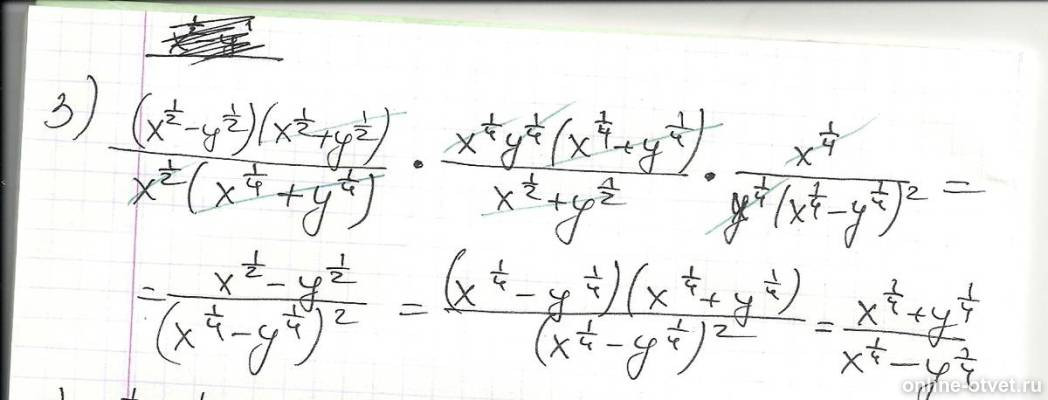 3) \frac{(x^{\frac{1}{2}}-y^{\frac{1}{2}})(x^{\frac{1}{2}}+y^{\frac{1}{2}})}{x^{\frac{1}{2}}(x^{\frac{1}{4}}+y^{\frac{1}{4}})} \cdot \frac{x^{\frac{1}{4}}y^{\frac{1}{4}}(x^{\frac{1}{4}}+y^{\frac{1}{4}})}{x^{\frac{1}{2}}+y^{\frac{1}{2}}} \cdot \frac{x^{\frac{1}{4}}}{y^{\frac{1}{4}}(x^{\frac{1}{4}}-y^{\frac{1}{4}})^2} =
= \frac{x^{\frac{1}{2}}-y^{\frac{1}{2}}}{(x^{\frac{1}{4}}-y^{\frac{1}{4}})^2} = \frac{(x^{\frac{1}{4}}-y^{\frac{1}{4}})(x^{\frac{1}{4}}+y^{\frac{1}{4}})}{(x^{\frac{1}{4}}-y^{\frac{1}{4}})^2} = \frac{x^{\frac{1}{4}}+y^{\frac{1}{4}}}{x^{\frac{1}{4}}-y^{\frac{1}{4}}}
online-otvet.ru